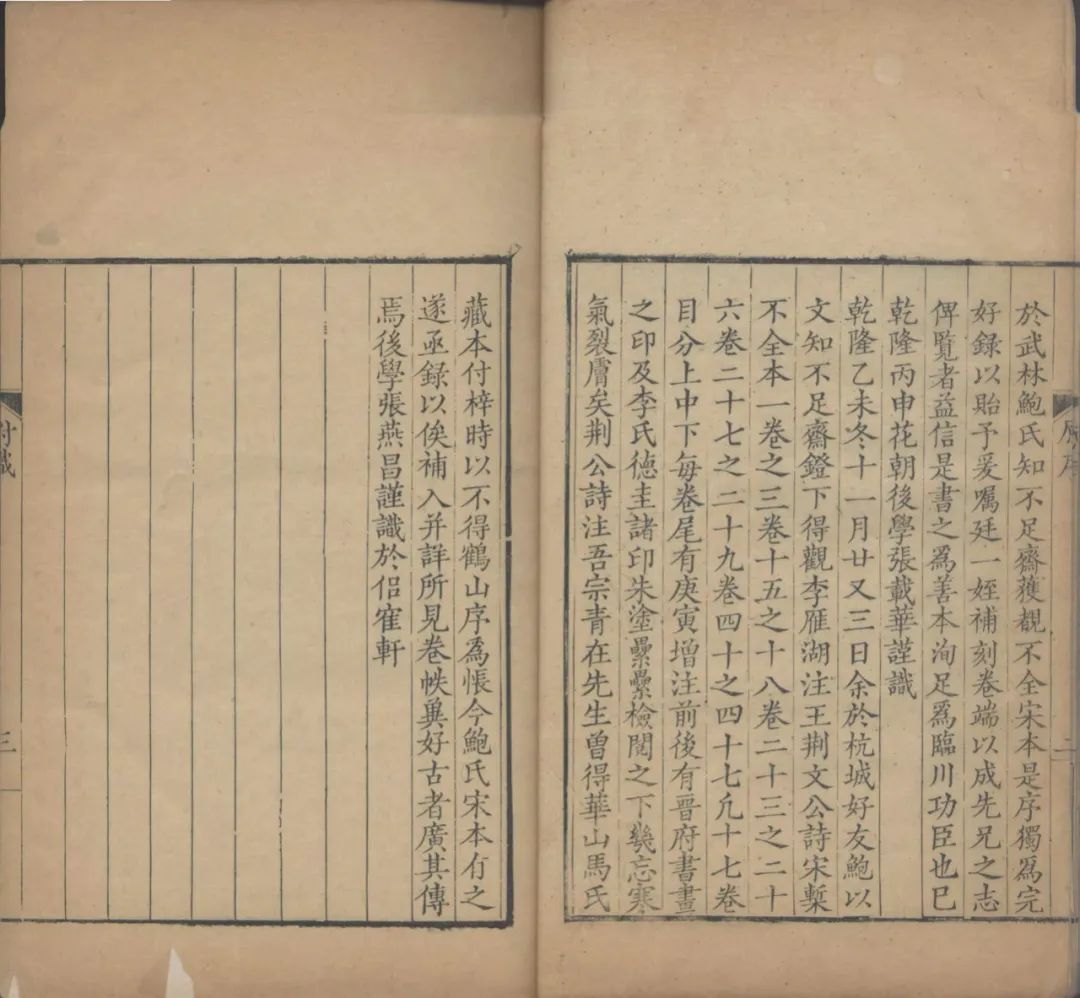 於武林鮑氏知不足齋獲覩不全宋本是序獨爲完
好録以貽予爰囑廷一姪補刻卷端以成先兄之志
俾覧者益信是書之爲善本洵足爲臨川功臣也巳
乾隆丙申花朝後學張載華謹識
乾隆乙未冬十一月廿又三日余於杭城好友鮑以
文知不足齋鐙下得觀李雁湖注王荆文公詩宋槧
不全本一卷之三卷十五之十八卷二十三之二十
六卷二十七之二十九卷四十之四十七凢十七卷
目分上中下每卷尾有庚寅增注前後有晉府書畫
之印及李氏德圭諸印朱塗纍纍檢閱之下幾忘寒
氣裂膚矣荆公詩注吾宗青在先生曾得華山馬氏
二
藏本付梓時以不得鶴山序爲悵今鮑氏宋本有之
遂亟録以俟補入并詳所見卷帙冀好古者廣其傳
焉後學張燕昌謹識於侣隺軒
付識
三